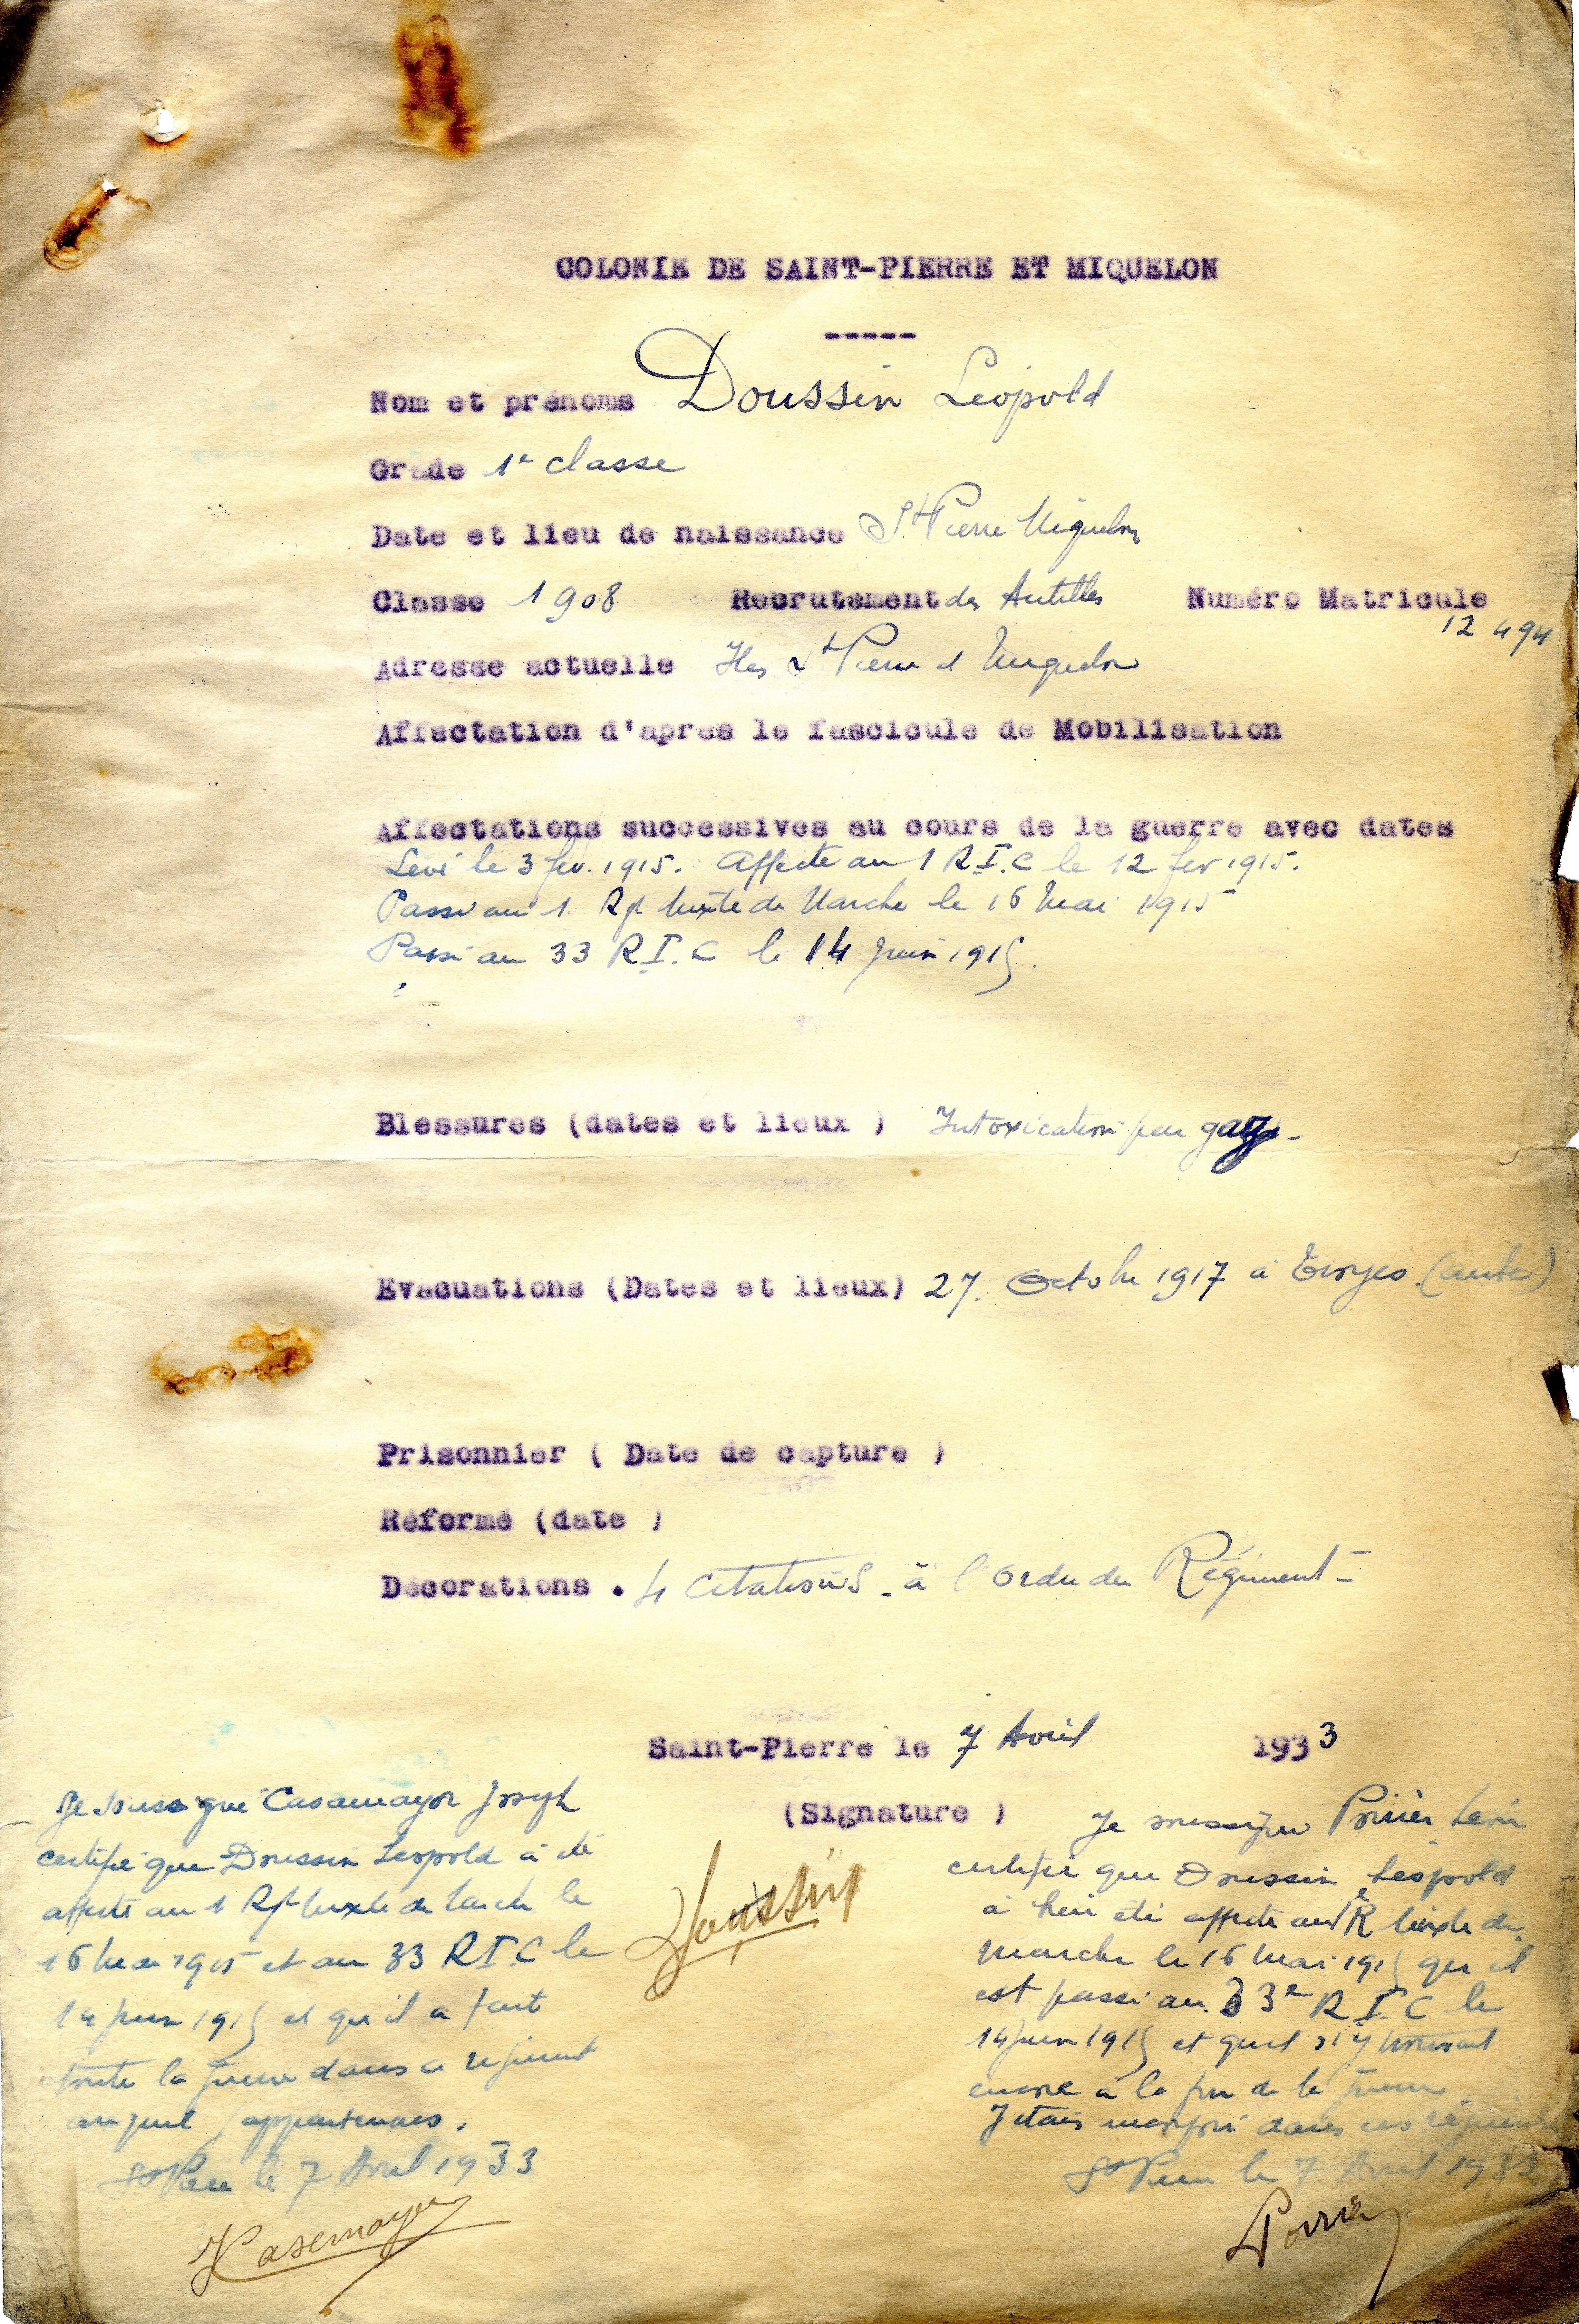 COLONIE DE SAINT-PIERRE ET MIQUELON
-----
Nom et prénoms Doussin Léopold
Grade 1e classe
Date et lieu de naissance St Pierre Miquelon
Classe 1908 Recrutement des Antilles Numéro Matricule
12 494
Adresse actuelle Iles St Pierre et Miquelon
Affectation d'apres le fascicule de Mobilisation
Affectations successives au cours de la guerre avec dates
Levé le 3 fev. 1915. Affecté au 1 R.I.C le 12 fev 1915.
Passé au 1. Rgt Mixte de Marche le 16 Mai 1915
Passé au 33 R.I.C le 14 Juin 1915.
Blessures (dates et lieux ) Intoxication par gaz -
Evacuations (Dates et lieux) 27. Octobre 1917 à Troyes. (aube)
Prisonnier ( Date de capture )
Réformé (date )
Décorations . 4 Citations - à l'ordre du Régiment -
Saint-Pierre le 7 Avril 1933
(Signature )
Doussin
Je soussigné Casamayor Joseph
certifie que Doussin Léopold a été
affecté au 1 Rgt Mixte de Marche le
16 Mai 1915 et au 33 R.I.C le
14 Juin 1915 et qu'il a fait
toute la guerre dans ce régiment
auquel j'appartenais.
St Pierre le 7 Avril 1933
Casamayor
Je soussigné Poirier
certifie que Doussin Léopold
a été affecté au 1e R Mixte de
marche le 16 Mai 1915 qu'il
est passé au 33e R.I.C le
14 Juin 1915 et qu'il s'y trouvait
encore à la fin de la guerre.
J'étais dans ces régiments
St Pierre le 7 Avril 1933
Poirier